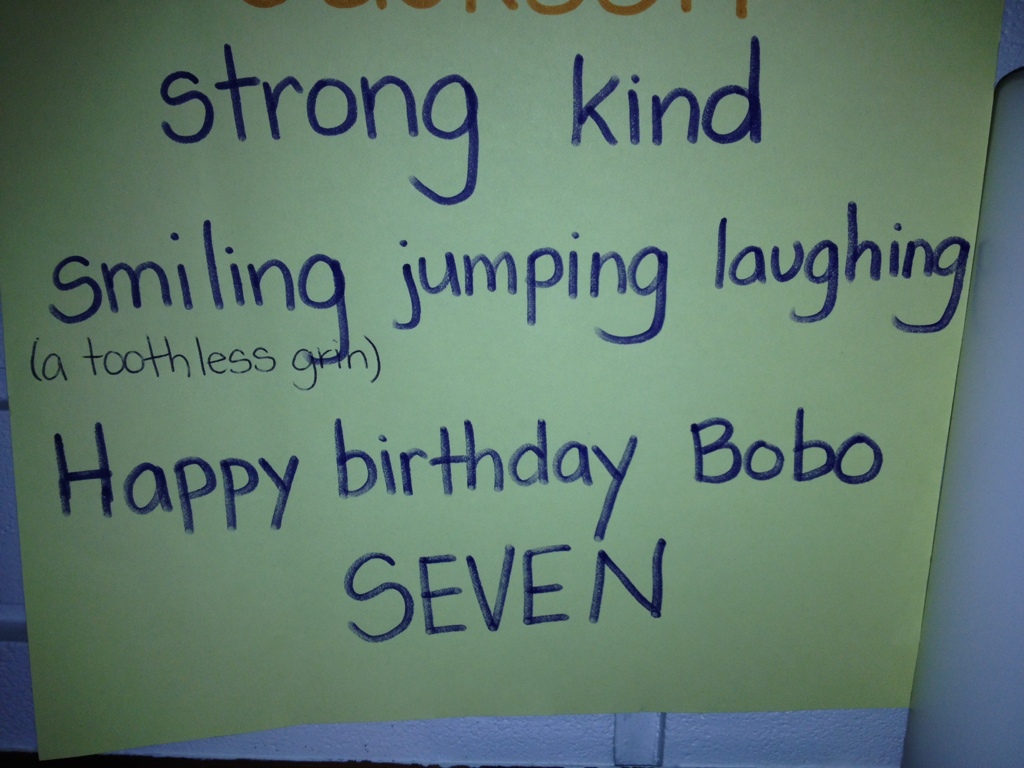 Jackson
strong kind
smiling jumping laughing
(a toothless grin)
Happy birthday Bobo
SEVEN